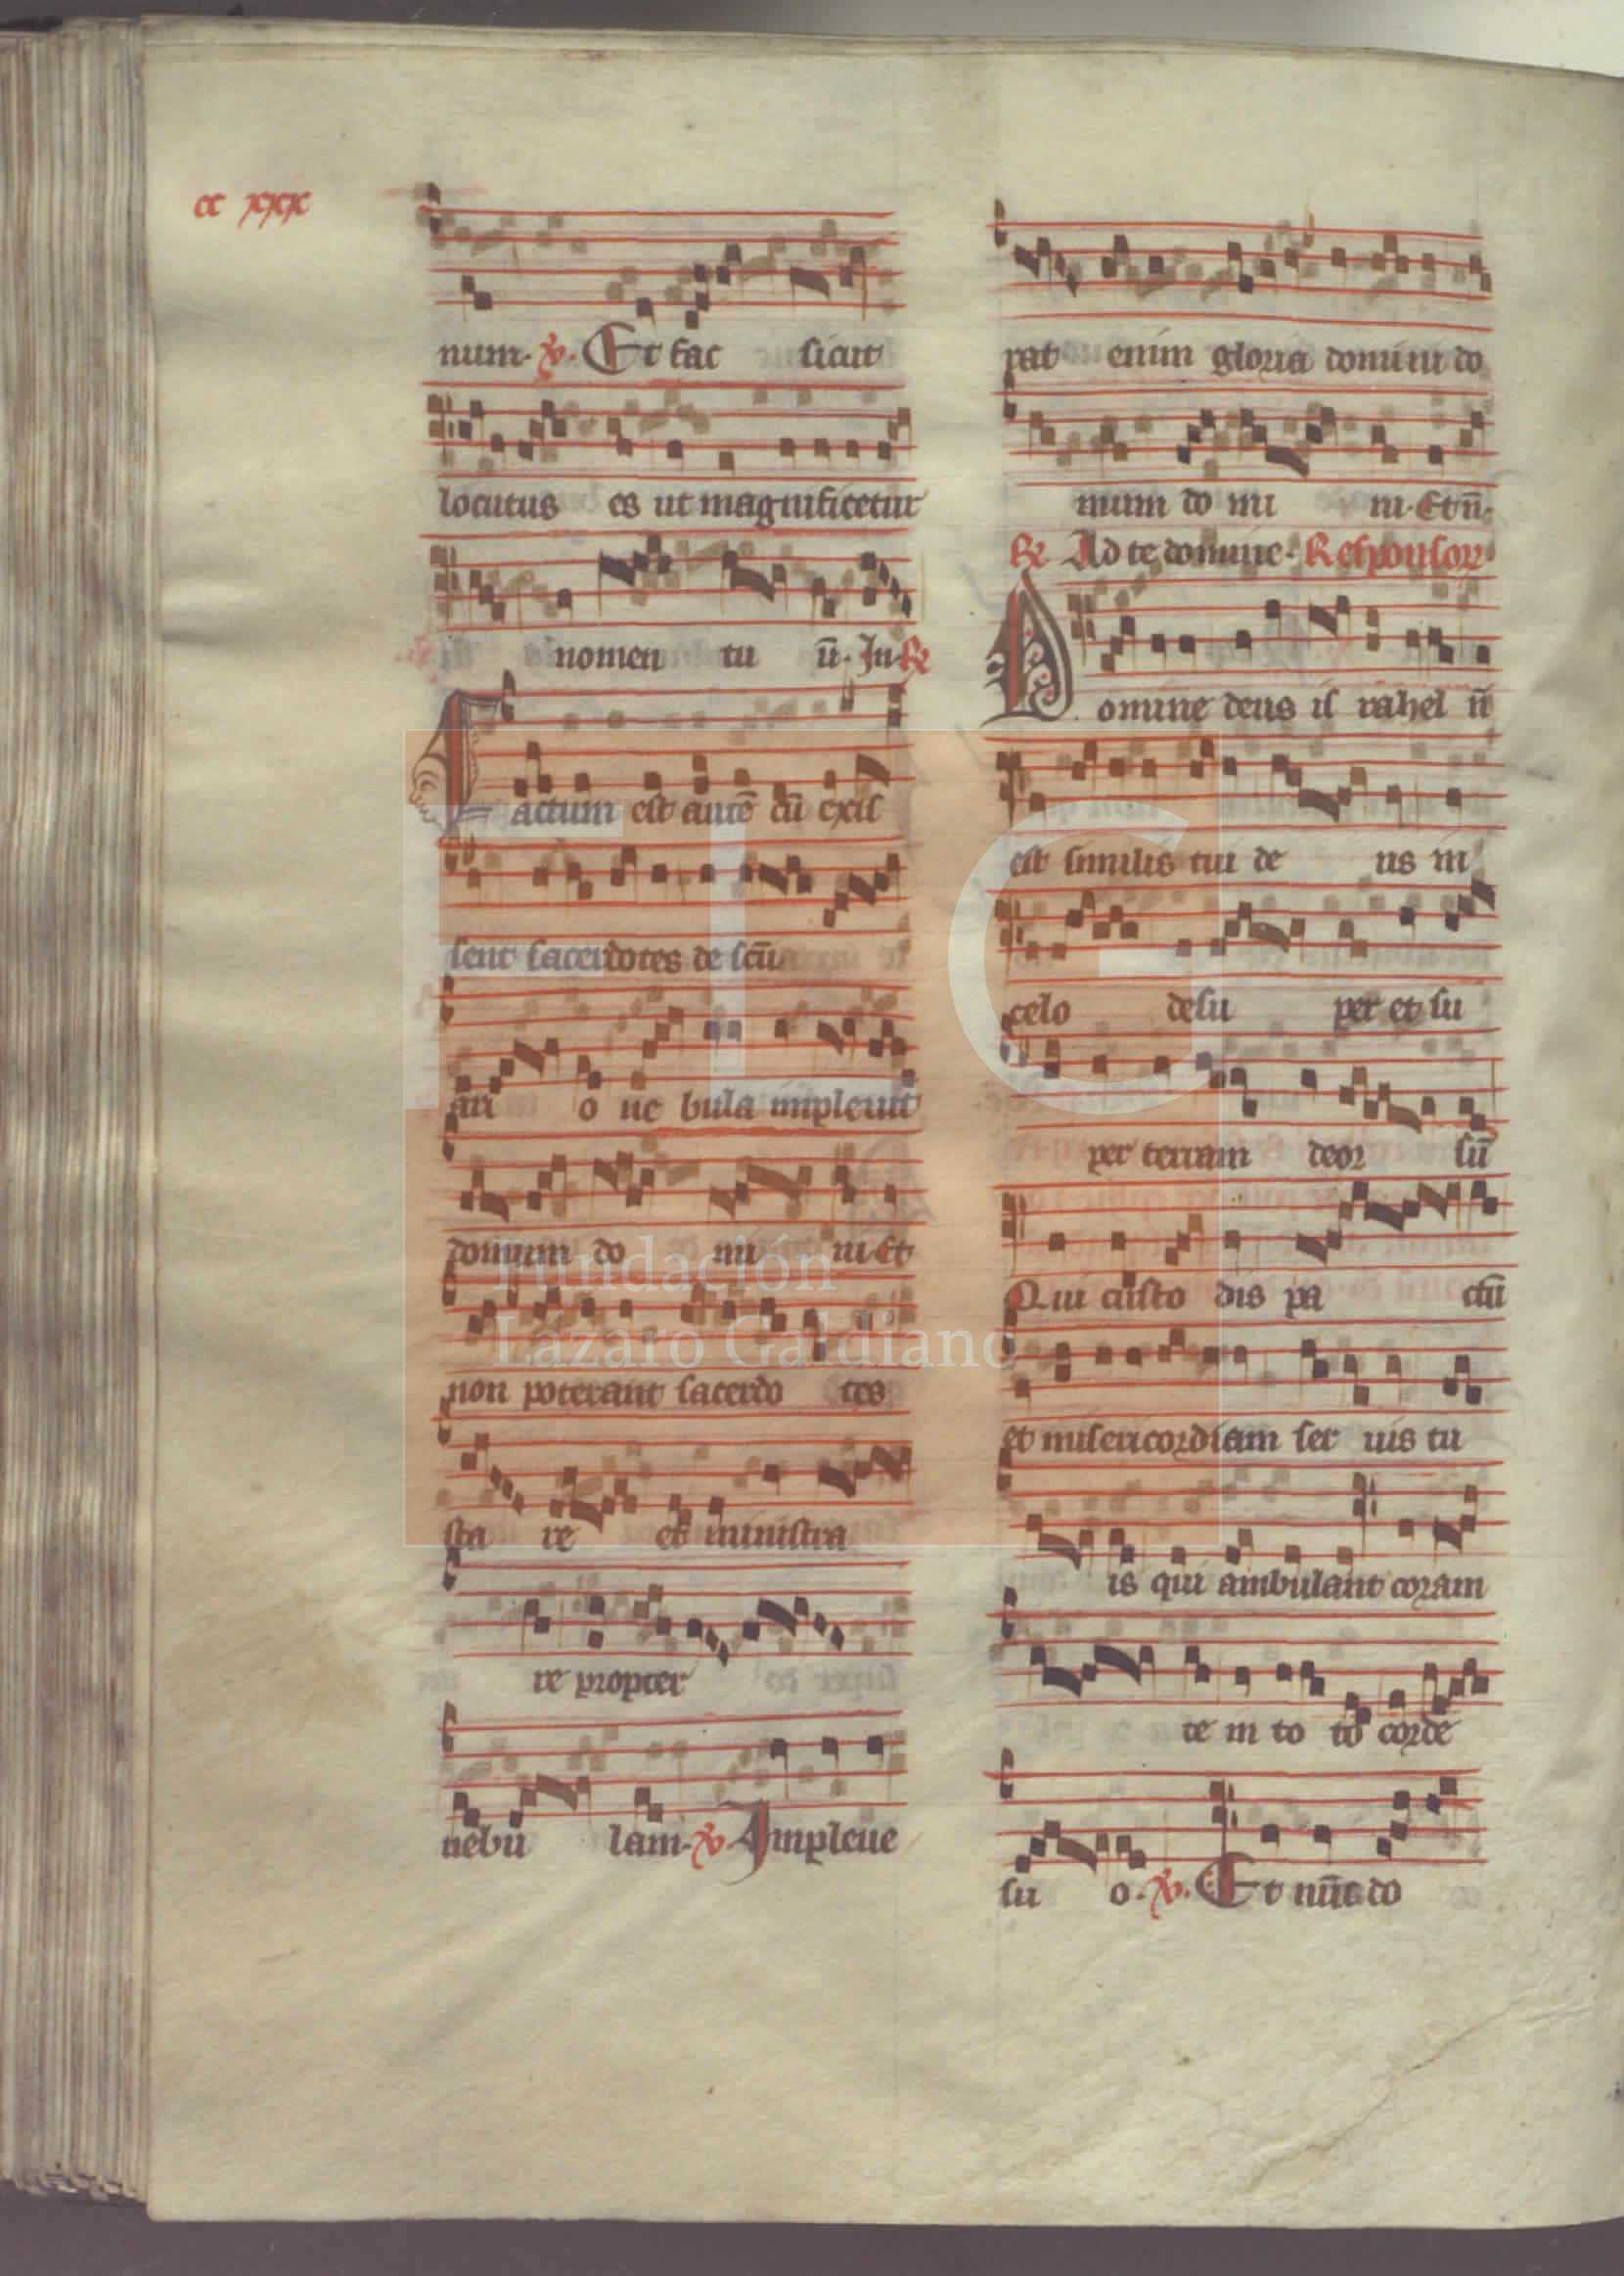 cc xxx
num. ℣. Et fac sicut
locutus es ut magnificetur
nomen tu ū. In ℟
Factum est autē cū exis
sent sacerdotes de scū
ari o ne bula impleuit
domum do mi ni. Et
non poterant sacerdo tes
sta re et ministra
re propter
nebu lam. ℣. Impleue
rat enim gloria domini do
mum do mi ni. Et n̄.
℟ Ad te domine. Responsor
Domine deus is rahel n̄
est similis tui de us in
celo desu per et su
per terram deor sū
Qui custo dis pa ctū
et misericordiam ser uis tu
is qui ambulant coram
te in to to corde
su o. ℣. Et nūc do
FLG
Fundación
Lázaro Galdiano